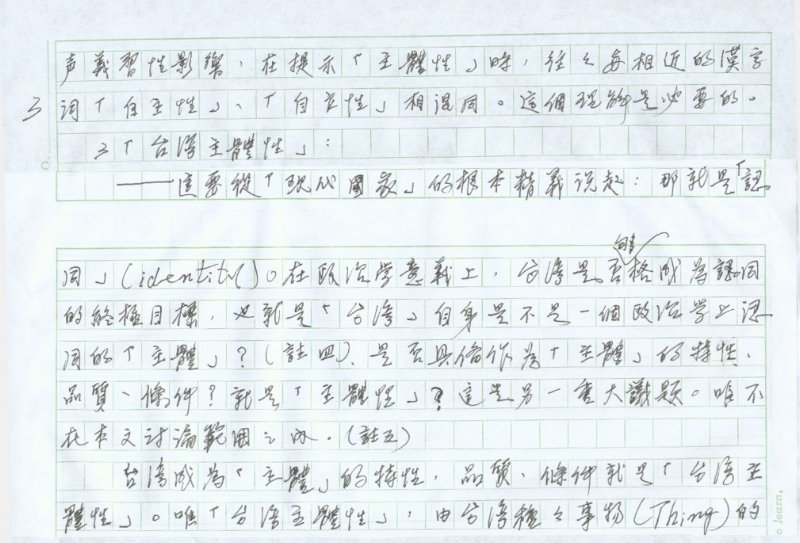 声義習性影響，在提示「主體性」時，往々與相近的漢字
3 詞「自主性」、「自立性」相混同。這個理解是必要的。
3「台湾主體性」：
——這要從「現代國家」的根本精義説起：那就是「認
同」(identity)。在政治学意義上，台湾是否夠格成為認同
的終極目標，也就是「台湾」自身是不是一個政治学上認
同的「主體」？(註四)，是否具備作為「主體」的特性、
品質、條件？就是「主體性」？這是另一重大議題。唯不
在本文討論範囲之内。(註五)
台湾成為「主體」的特性，品質，條件就是「台湾主
體性」。唯「台湾主體性」，由台湾種々事物(Thing)的
o learn.